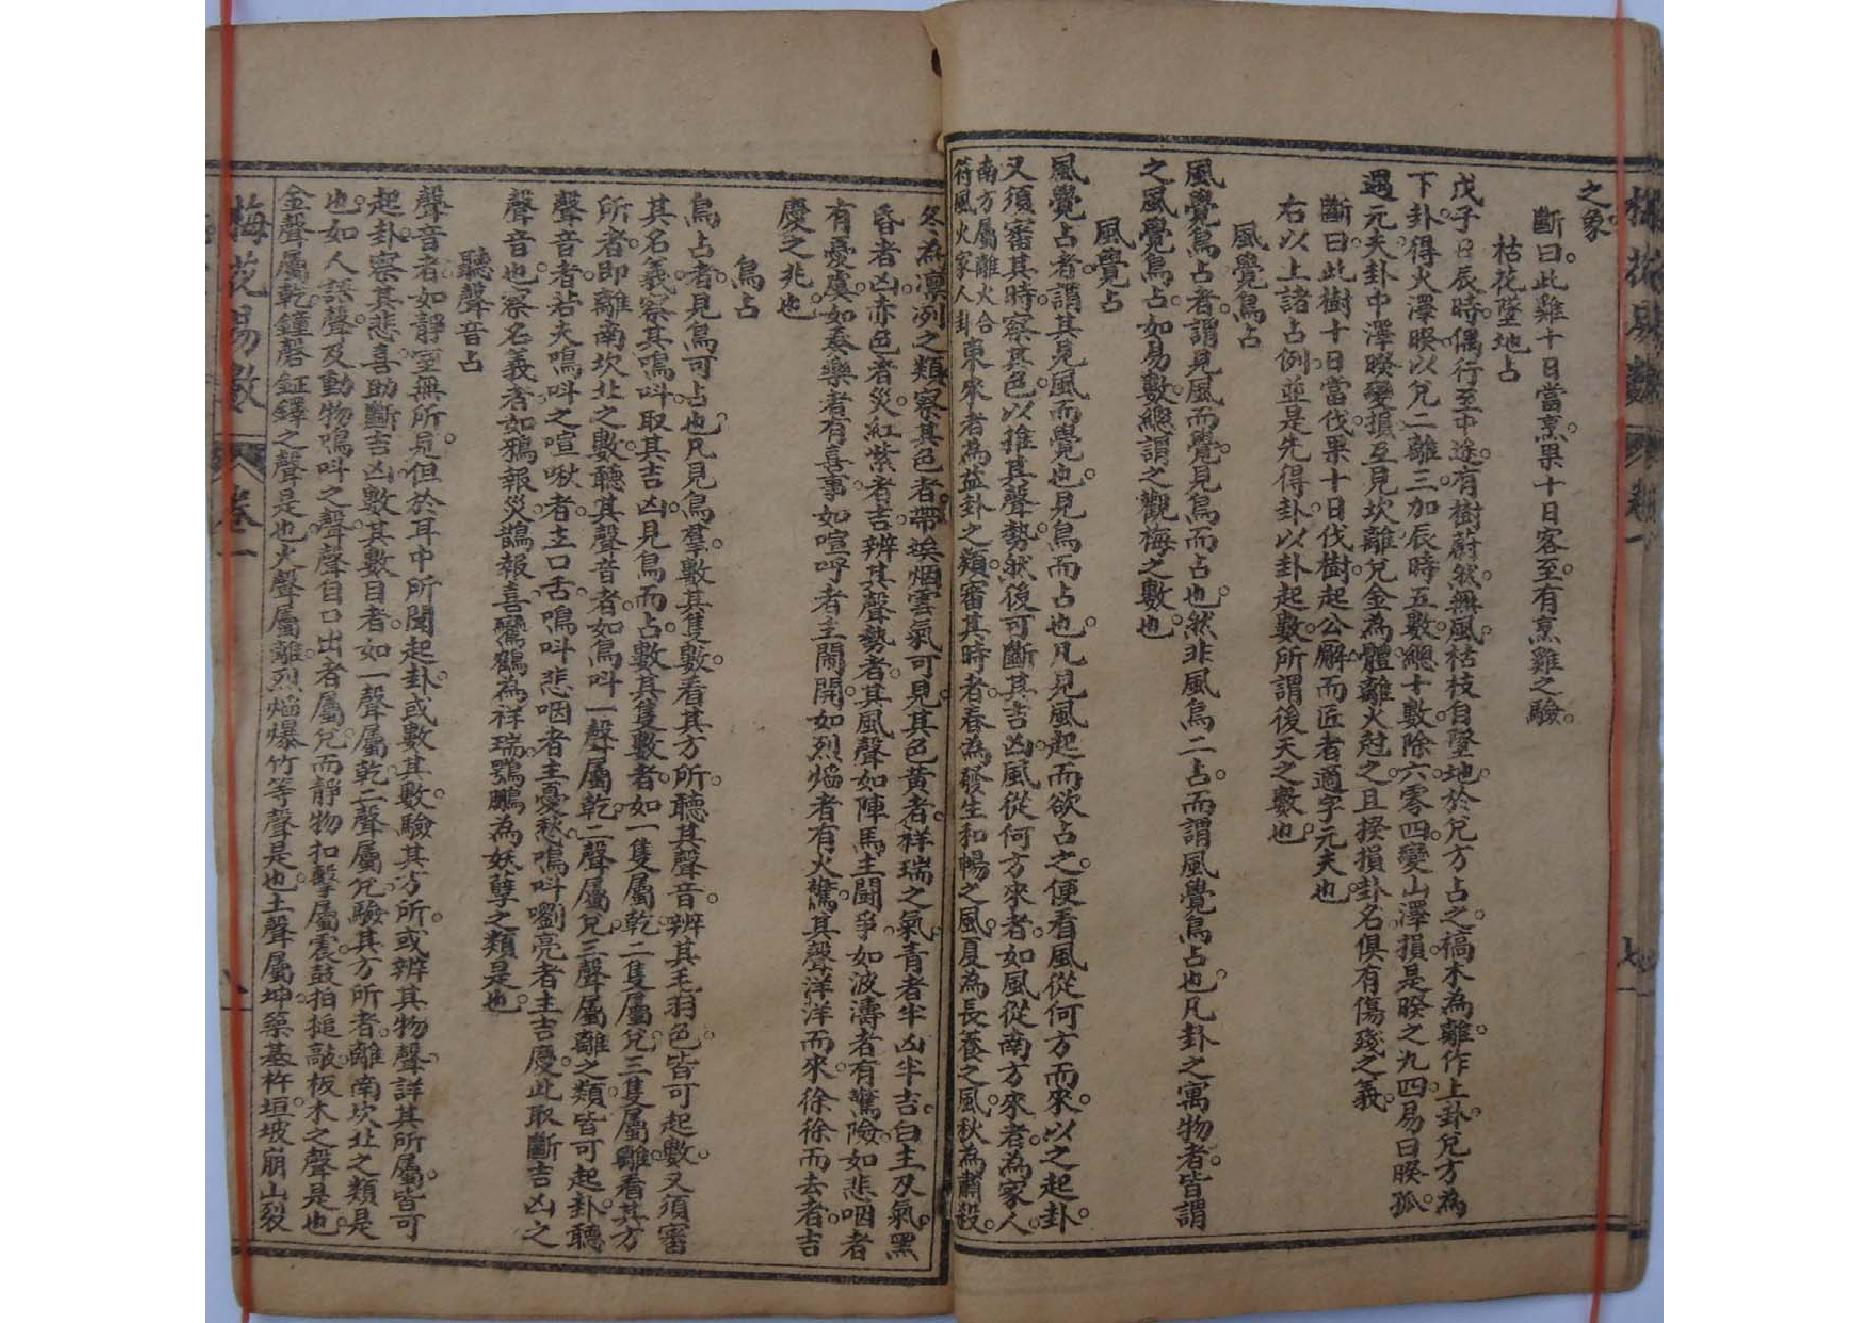 之象
斷曰。此雞十日當烹。果十日客至。有烹雞之驗。
枯花墜地占
戊子日辰時。偶行至中途。有樹蔚然。無風枯枝自墜地於兌方。占之。槁木為離作上卦。兌方為
下卦。得火澤睽。以兌二離三加辰時五數總十數除六零四變山澤損是睽之九四易曰睽孤。
遇元夫卦中澤睽變損互見坎離兌金為體離火尅之。且揆損卦名俱有傷殘之義。
斷曰此樹十日當伐果十日伐樹起公廨而匠者適字元夫也。
右以上諸占例並是先得卦以卦起數所謂後天之數也。
風覺鳥占
風覺鳥占者。謂見風而覺。見鳥而占也。然非風鳥二占。而謂風覺鳥占也。凡卦之寓物者。皆謂
之風覺鳥占。如易數總謂之觀梅之數也。
風覺占
風覺占者。謂其見風而覺也。見鳥而占也。凡見風起而欲占之。便看風從何方而來。以之起卦。
又須審其時。察其色。以推其聲勢。然後可斷其吉凶。風從何方來者。如風從南方來者。為家人。
南方屬離火合
符風火家人卦東來者為益卦之類。審其時者。春為發生和暢之風。夏為長養之風。秋為肅殺。
冬為凛冽之類。察其色者。帶埃烟雲氣可見其色黃者。祥瑞之氣。青者半凶半吉。白主刃氣。黑
昏者凶。赤色者災。紅紫者吉。辨其聲勢者。其風聲如陣馬主鬪爭。如波濤者有驚險。如悲咽者
有憂虞。如奏樂者有喜事。如喧呼者主鬧鬨。如烈焰者有火驚。其聲洋洋而來。徐徐而去者。吉
慶之兆也。
鳥占
鳥占者。見鳥可占也。凡見鳥羣。數其隻數。看其方所。聽其聲音。辨其毛羽色。皆可起數。又須審
其名義。察其鳴呌。取其吉凶。見鳥而占。數其隻數者。如一隻屬乾二隻屬兌三隻屬離。看其方
所者。即離南坎北之數。聽其聲音者。如鳥呌一聲屬乾。二聲屬兌。三聲屬離之類。皆可起卦。聽
聲音者。若夫鳴呌之喧啾者。主口舌。鳴呌悲咽者主憂愁。鳴呌嚠亮者主吉慶。此取斷吉凶之
聲音也。察名義者。如鴉報災。鵲報喜。鸞鶴為祥瑞。鶚鵩為妖孽之類是也。
聽聲音占
聲音者。如靜室無所見。但於耳中所聞起卦。或數其數。驗其方所。或辨其物聲。詳其所屬。皆可
起卦。察其悲喜。助斷吉凶。數其數目者。如一聲屬乾。二聲屬兌。驗其方所者。離南坎北之類是
也。如人語聲。及動物鳴呌之聲。聲自口出者屬兌。而靜物扣擊屬震。鼓拍搥敲板木之聲是也。
金聲屬乾。鐘磬鉦鐸之聲是也。火聲屬離。烈焰爆竹等聲是也。土聲屬坤。築基杵垣坡崩山裂
梅花易數 卷一 八